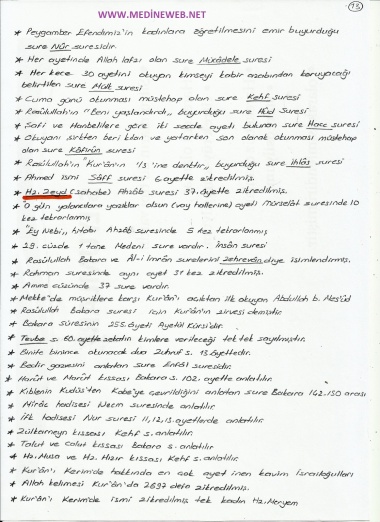 WWW.MEDİNEWEB.NET
13
* Peygamber Efendimiz'in kadınlara öğretilmesini emir buyurduğu
sure Nûr suresidir.
* Her ayetinde Allah lafzı olan sure Mücâdele suresi
* Her gece 30 ayetini okuyan kimseyi kabir azabından koruyacağı
belirtilen sure Mülk suresi
* Cuma günü okunması müstehap olan sure Kehf suresi
* Rasûlullah'ın "Beni yaşlandırdı,, buyurduğu sure Hûd Suresi
* Şafi ve Hanbelilere göre iki secde ayeti bulunan sure Hacc suresi
* Okuyanı şirkten beri kılan ve yatarken son olarak okunması müstehap
olan sure Kâfirûn suresi
* Rasûlullah'ın "Kur'ânın 1/3 'ine denktir,, buyurduğu sure İhlâs suresi
* Ahmed ismi Sâff suresi 6 ayette zikredilmiş.
* Hz. Zeyd (sahabe) Ahzâb suresi 37. ayette zikredilmiş.
* "O gün yalanlara yazıklar olsun (vay hallerine) ayeti Mürselât suresinde 10
kez tekrarlanmış
* "Ey Nebi,, hitabı Ahzâb suresinde 5 kez tekrarlanmış
* 29. cüzde 1 tane Medeni sure vardır. İnsân suresi
* Rasûlullah Bakara ve Âl-i İmrân surelerini zehrevân diye isimlendirmiş.
* Rahman suresinde aynı ayet 31 kez zikredilmiş.
* Amme cüzünde 37 sure vardır.
* Mekke'de müşriklere karşı Kur'ân'ı açıktan ilk okuyan Abdullah b. Mes'ûd
* Rasûlullah Bakara suresi için Kur'ânın zirvesi demiştir.
* Bakara Sûresinin 255. ayeti Ayetül Kürsi'dir.
* Tevbe s. 60. ayette zekatın kimlere verileceği tek tek sayılmıştır.
* Binite binince okunacak dua Zuhruf s. 13. ayettedir.
* Bedir gazvesini anlatan sure Enfâl suresidir.
* Harût ve Marût kıssası Bakara s. 102. ayette anlatılır.
* Kıblenin Kudüs'ten Kabe'ye çevrildiğini anlatan sure Bakara 142.150 arası
* Mirâc hâdisesi Necm suresinde anlatılır.
* İfk hadisesi Nur suresi 11,12,13. ayetlerde anlatılır.
* Zülkarneyn kıssası Kehf s. anlatılır.
* Talut ve Calut kıssası Bakara s. anlatılır.
* Hz. Musa ve Hz. Hızır kıssası Kehf s. anlatılır.
* Kur'ân'ı Kerim'de hakkında en çok ayet inen kavim İsrailoğulları
* Allah kelimesi Kur'ân'da 2697 defa zikredilmiş.
* Kur'ân'ı Kerim'de ismi zikredilmiş tek kadın Hz. Meryem